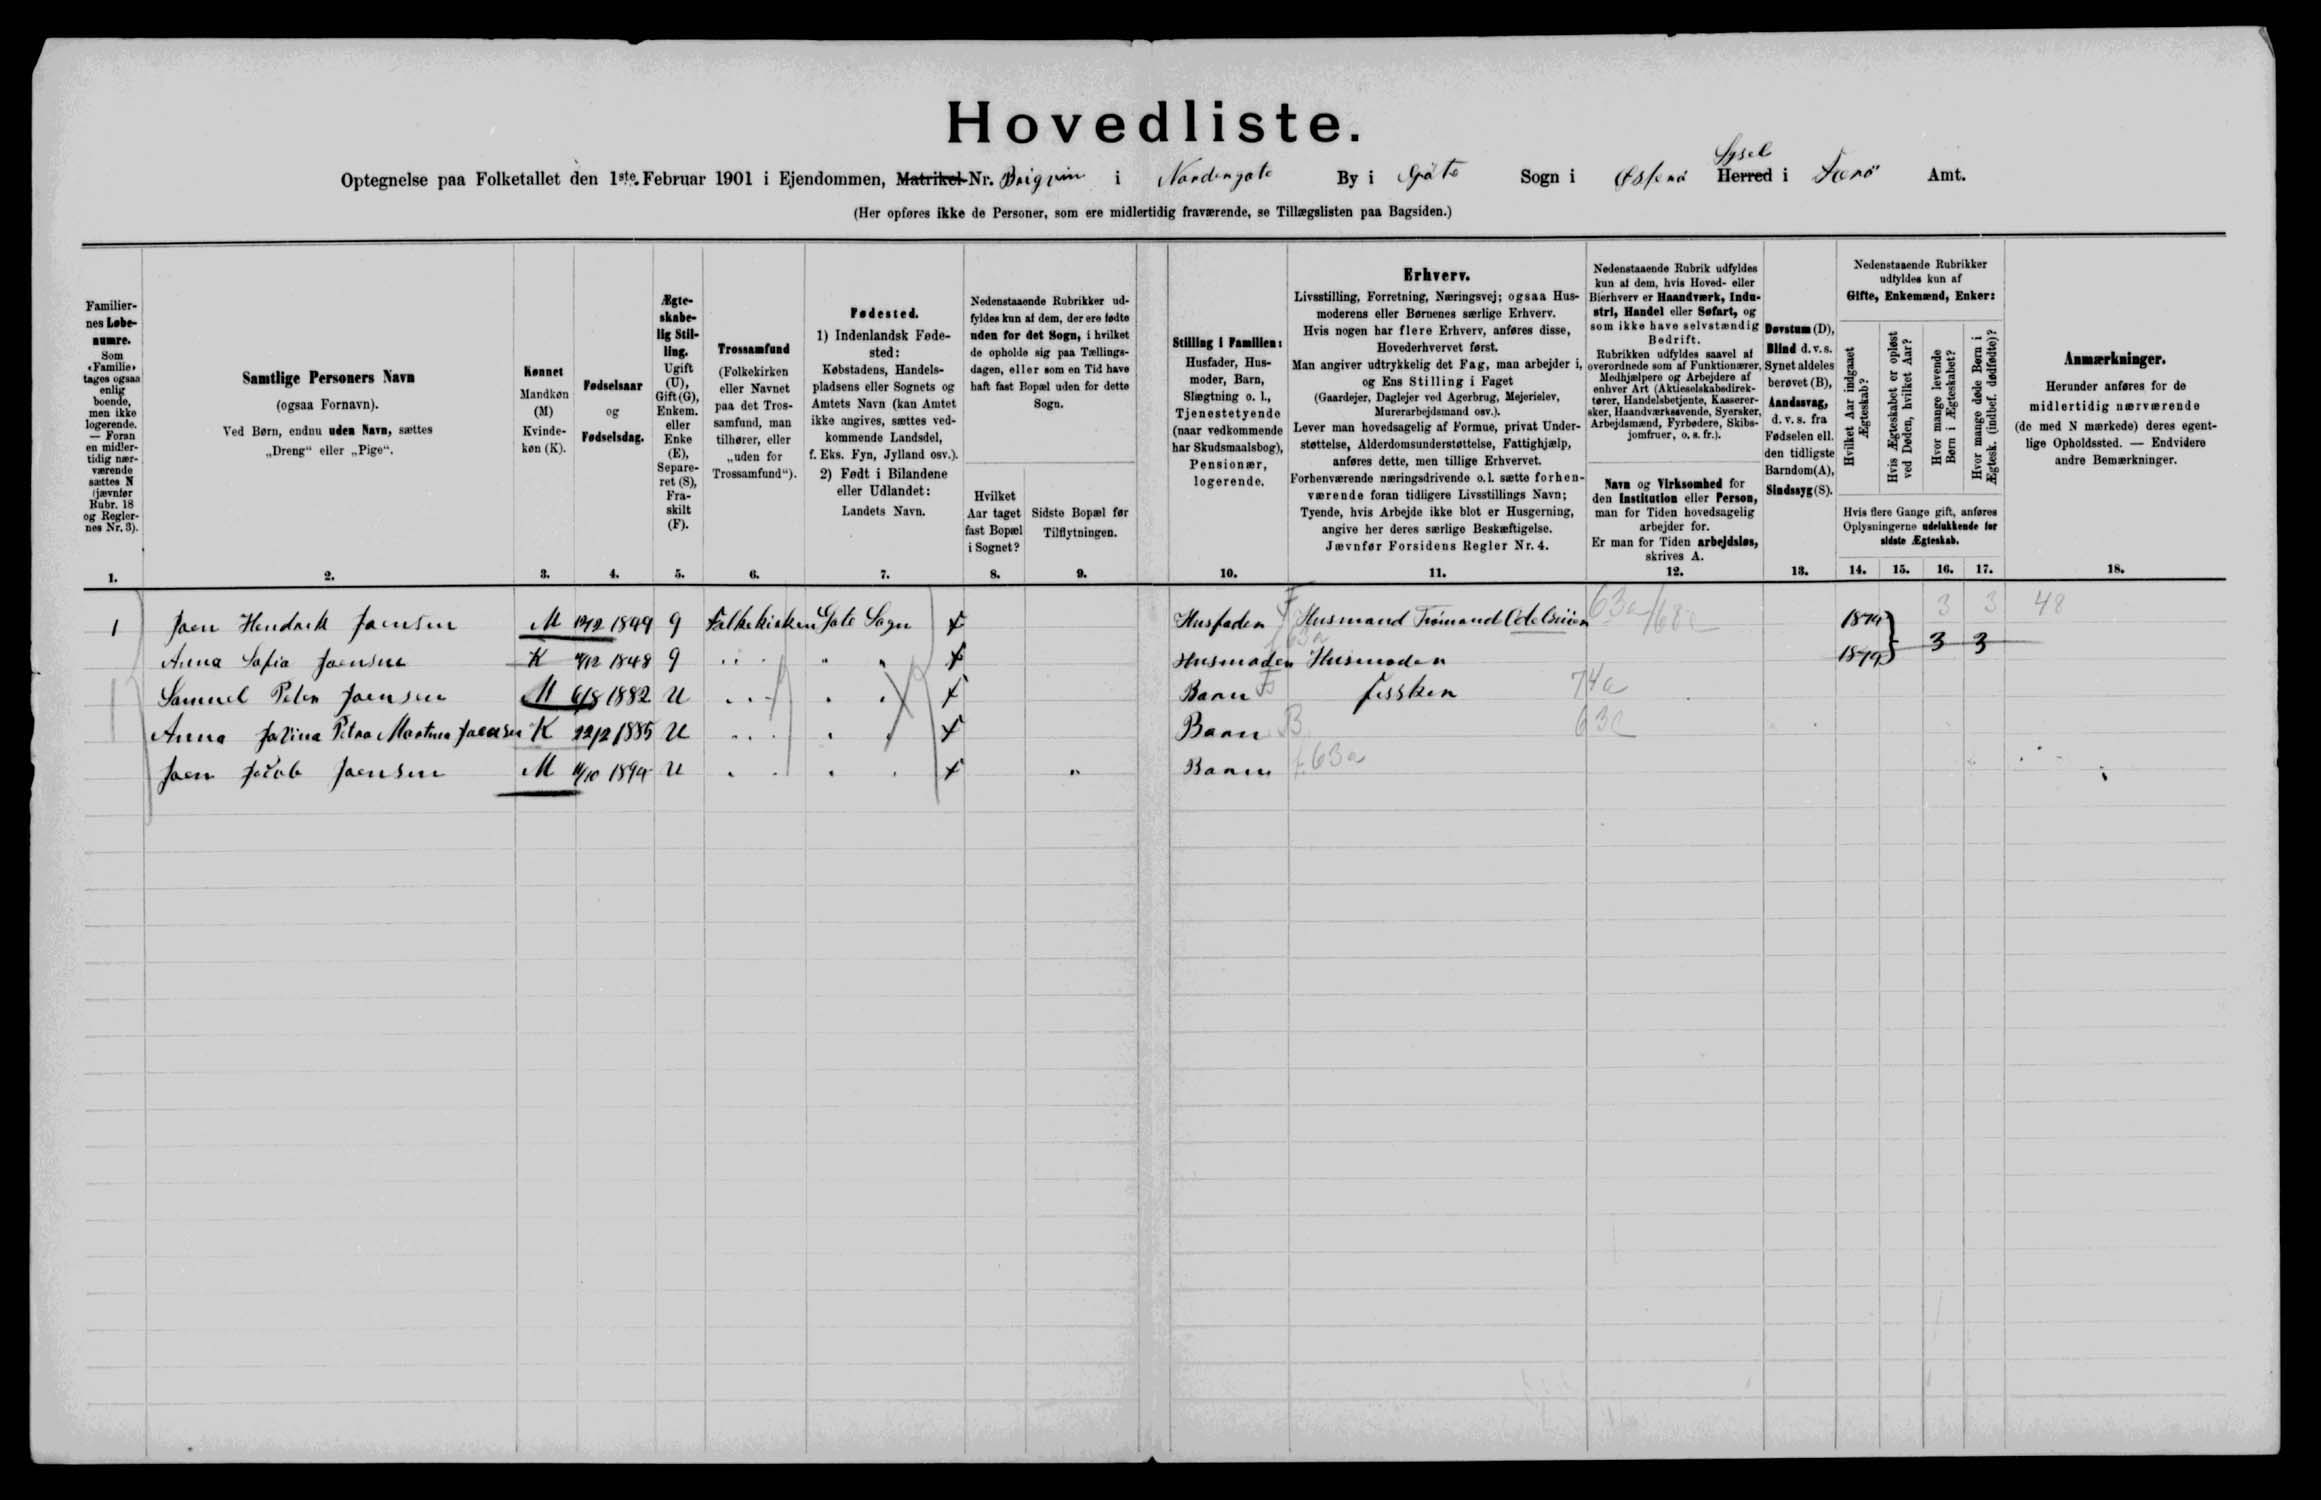 Hovedliste.
Sysel
Optegnelse paa Folketallet den 1ste. Februar 1901 i Ejendommen, Matrikel-Nr. i Nordengøte By i Gøte Sogn i Østerø Herred i Færø Amt.
(Her opføres ikke de Personer, som ere midlertidig fraværende, se Tillægslisten paa Bagsiden.)
Familiernes Løbenumre.
Som «Familie» tages ogsaa enlig boende, men ikke logerende. — Foran en midlertidig nærværende sættes N (jævnfør Rubr. 18 og Reglernes Nr. 3).
1.
Samtlige Personers Navn
(ogsaa Fornavn).
Ved Børn, endnu uden Navn, sættes
„Dreng“ eller „Pige“.
2.
Kønnet
Mandkøn (M) Kvindekøn (K).
3.
Fødselsaar
og
Fødselsdag.
4.
Ægteskabelig Stilling.
Ugift (U), Gift (G), Enkem. eller Enke (E), Separeret (S), Fraskilt (F).
5.
Trossamfund
(Folkekirken eller Navnet paa det Trossamfund, man tilhører, eller „uden for Trossamfund“).
6.
Fødested.
1) Indenlandsk Fødested:
Købstadens, Handelspladsens eller Sognets og Amtets Navn (kan Amtet ikke angives, sættes vedkommende Landsdel, f. Eks. Fyn, Jylland osv.).
2) Født i Bilandene eller Udlandet:
Landets Navn.
7.
Nedenstaaende Rubrikker udfyldes kun af dem, der ere fødte uden for det Sogn, i hvilket de opholde sig paa Tællingsdagen, eller som en Tid have haft fast Bopæl uden for dette Sogn.
Hvilket Aar taget fast Bopæl i Sognet?
8.
Sidste Bopæl før Tilflytningen.
9.
Stilling i Familien:
Husfader, Husmoder, Barn, Slægtning o. l., Tjenestetyende (naar vedkommende har Skudsmaalsbog), Pensionær, logerende.
10.
Erhverv.
Livsstilling, Forretning, Næringsvej; ogsaa Husmoderens eller Børnenes særlige Erhverv.
Hvis nogen har flere Erhverv, anføres disse, Hovederhvervet først.
Man angiver udtrykkelig det Fag, man arbejder i, og Ens Stilling i Faget
(Gaardejer, Daglejer ved Agerbrug, Mejerielev, Murerarbejdsmand osv.).
Lever man hovedsagelig af Formue, privat Understøttelse, Alderdomsunderstøttelse, Fattighjælp, anføres dette, men tillige Erhvervet.
Forhenværende næringsdrivende o. l. sætte forhenværende foran tidligere Livsstillings Navn;
Tyende, hvis Arbejde ikke blot er Husgerning, angive her deres særlige Beskæftigelse.
Jævnfør Forsidens Regler Nr. 4.
11.
Nedenstaaende Rubrik udfyldes kun af dem, hvis Hoved- eller Bierhverv er Haandværk, Industri, Handel eller Søfart, og som ikke have selvstændig Bedrift.
Rubrikken udfyldes saavel af overordnede som af Funktionærer, Medhjælpere og Arbejdere af enhver Art (Aktieselskabsdirektører, Handelsbetjente, Kassererersker, Haandværkssvende, Syersker, Arbejdsmænd, Fyrbødere, Skibsjomfruer, o. s. fr.).
Navn og Virksomhed for den Institution eller Person, man for Tiden hovedsagelig arbejder for.
Er man for Tiden arbejdsløs, skrives A.
12.
Døvstum (D), Blind d. v. s. Synet aldeles berøvet (B), Aandssvag, d. v. s. fra Fødselen ell. den tidligste Barndom (A), Sindssyg (S).
13.
Nedenstaaende Rubrikker udfyldes kun af
Gifte, Enkemænd, Enker:
Hvilket Aar indgaaet Ægteskab?
Hvis Ægteskabet er opløst ved Døden, hvilket Aar?
Hvor mange levende Børn i Ægteskabet?
Hvor mange døde Børn i Ægtesk. (indbef. dødfødte)?
Hvis flere Gange gift, anføres Oplysningerne udelukkende for sidste Ægteskab.
14. 15. 16. 17.
Anmærkninger.
Herunder anføres for de midlertidig nærværende (de med N mærkede) deres egentlige Opholdssted. — Endvidere andre Bemærkninger.
18.
1 Joen Hendrik Joensen M 1849 G Folkekirken Gøte Sogn + Husfader F Husmand 63a 1879 3 3 48
Anna Sofia Joensen K 1848 G " " " " + Husmoder Husmoder 1879 3 3
Samuel Peter Joensen M 6/8 1882 U " " " " + Barn Fissker 74a
Anna Petra Martina Joensen K 1885 U " " " " + Barn B 63a
Joen Jacob Joensen M 1894 U " " " " + " Barn f. 63a